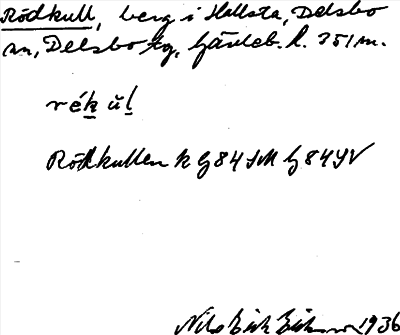 Rödkull, berg i Hallsta, Delsbo
sn, Delsbo tg, Gävleb. l. 351 m.
rék ŭl
Rödkullen k G84SM G84SV
Nils Erik 1936